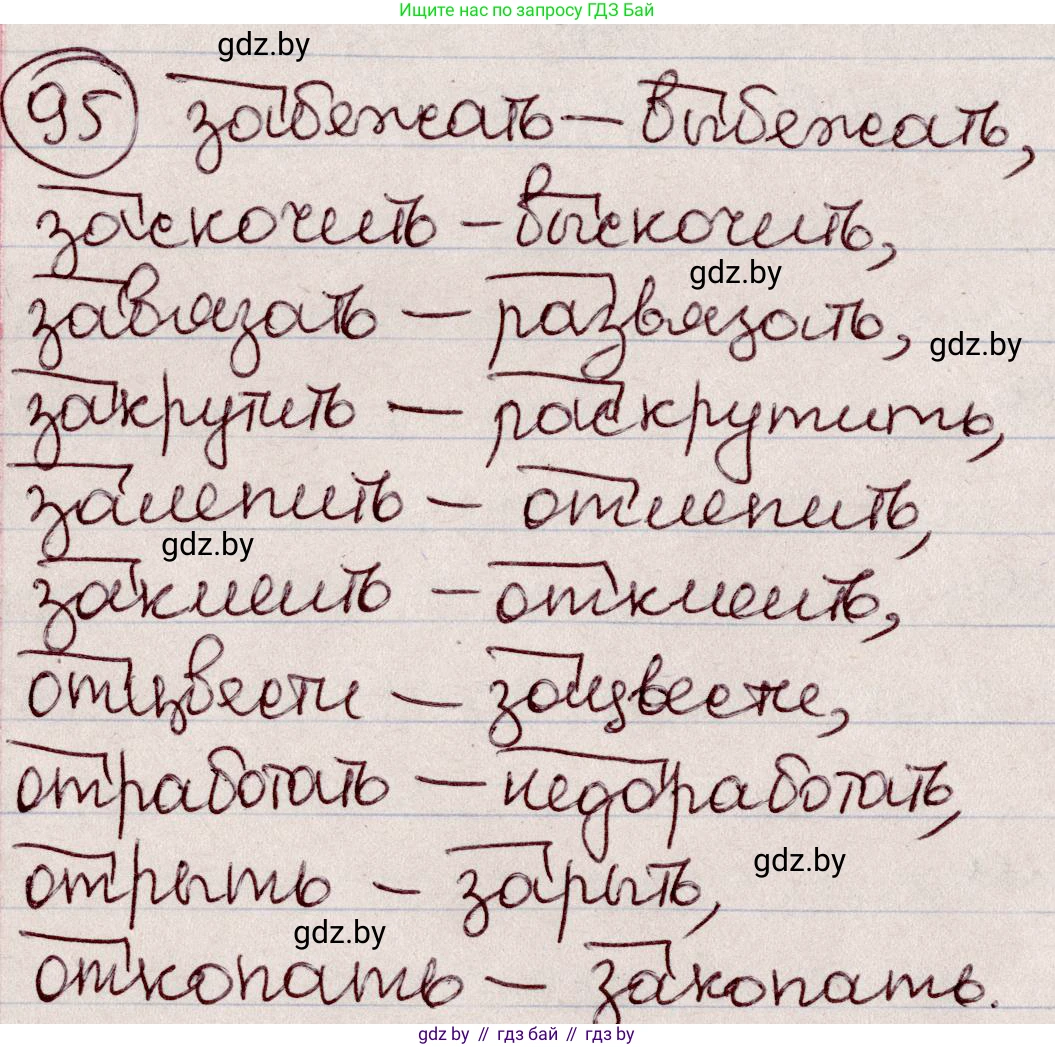 Ищите нас по запросу ГДЗ Бай
gdz.by
95 забежать — выбежать,
заскочить — выскочить,
gdz.by
завязать — развязать,
gdz.by
закрутить — раскрутить,
залепить — отлепить,
gdz.by
заклеить — отклеить,
отцвести — зацвести,
отработать — недоработать,
отрыть — зарыть,
gdz.by
gdz.by
откопать — закопать.
gdz by // гдз бай // гдз by